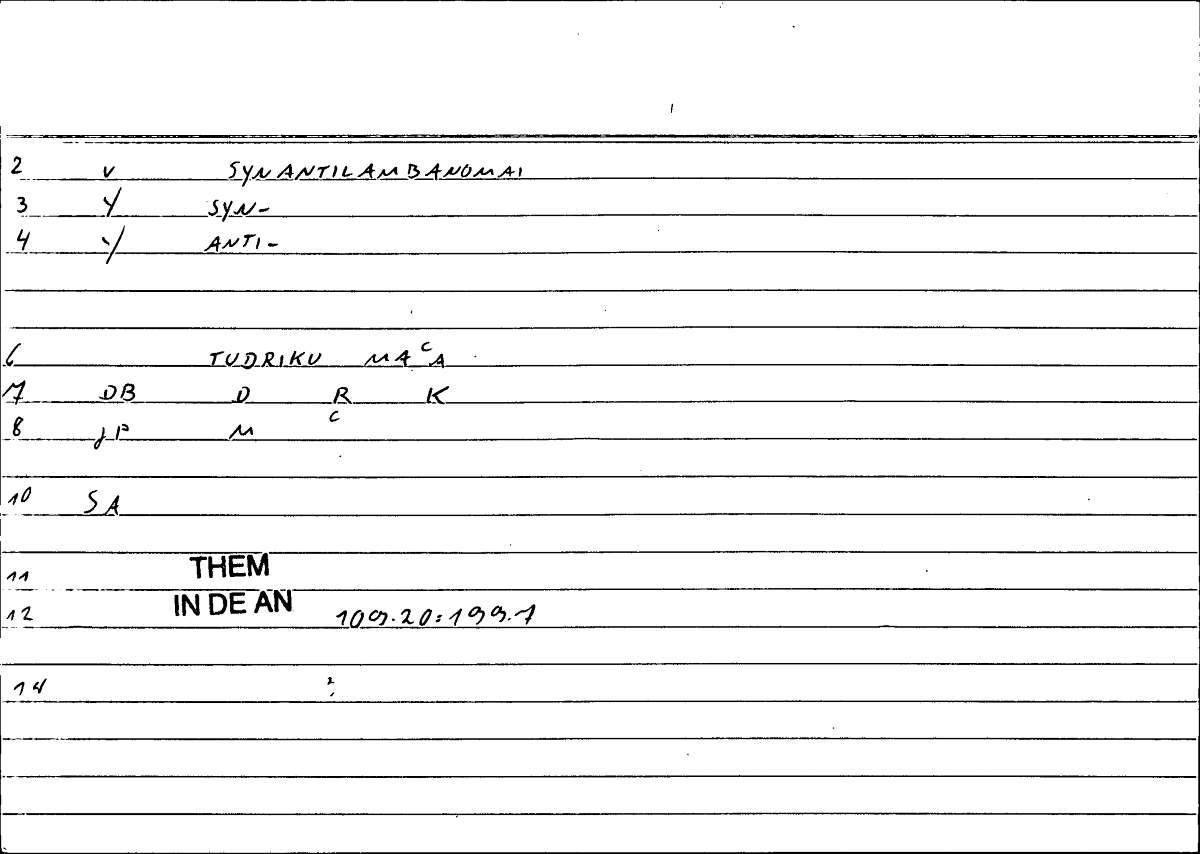 2 v SYNANTILAMBANOMAI
3 Y SYN-
4 Y ANTI-
6 TUDRIKU MAᶜA
7 DB D R K
8 JP M ᶜ
10 SA
11 THEM
12 IN DE AN 109.20:199.7
14